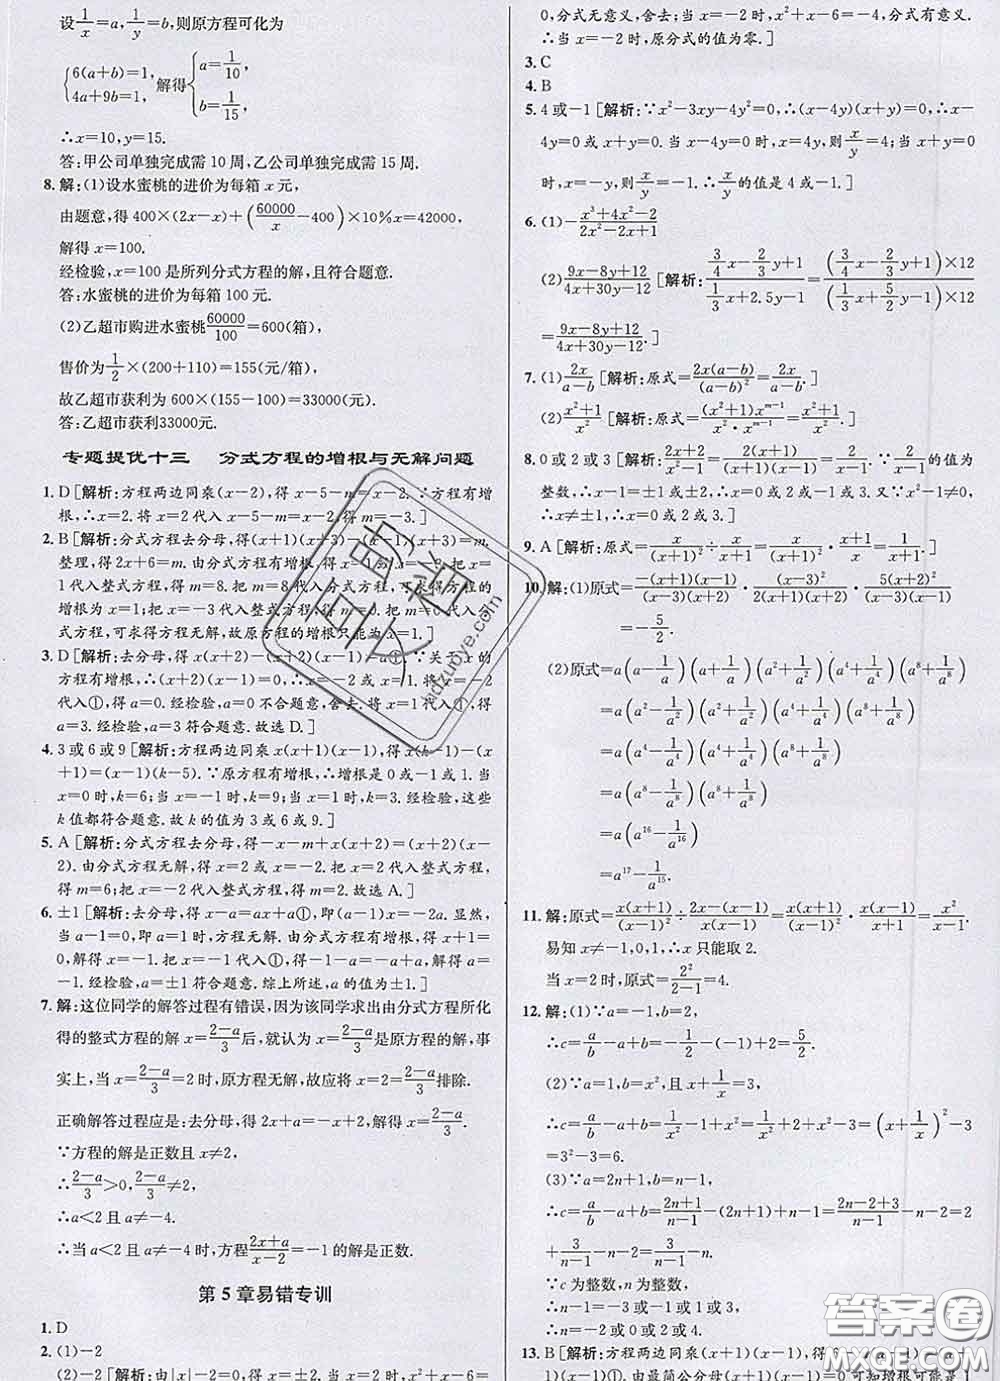 设1/x=a,1/y=b,则原方程可化为
{6(a+b)=1, 4a+9b=1, 解得{a=1/10, b=1/15,
∴x=10,y=15.
答:甲公司单独完成需 10 周,乙公司单独完成需 15 周.
8. 解:(1)设水蜜桃的进价为每箱 x 元,
由题意,得 400×(2x-x)+(60000/x-400)×10%x=42000,
解得 x=100.
经检验,x=100 是所列分式方程的解,且符合题意.
答:水蜜桃的进价为每箱 100 元.
(2)乙超市购进水蜜桃60000/100=600(箱),
售价为1/2×(200+110)=155(元/箱),
故乙超市获利为 600×(155-100)=33000(元).
答:乙超市获利33000元.
专题提优十三 分式方程的增根与无解问题
1. D [解析:方程两边同乘(x-2),得 x-5-m=x-2.∵方程有增
根,∴x=2.将 x=2 代入 x-5-m=x-2,得 m=-3.]
2. B [解析:分式方程去分母,得(x+1)(x+3)-(x-1)(x+3)=m.
整理,得 2x+6=m.由分式方程有增根,得 x=1 或 x=-3.把 x=
1代入整式方程,得 m=8.把 m=8 代入分式方程,可求得方程的
增根为 x=1;把 x=-3 代入整式方程,得 m=0.把 m=0 代入分
式方程,可求得方程无解,故原方程的增根只能为 x=1.]
3. D [解析:去分母,得 x(x+2)-(x+2)(x-1)=a①.∵关于 x 的
方程有增根,∴(x+2)(x-1)=0.∴x=-2 或 x=1.将 x=-2
代入①,得 a=0.经检验,a=0 不合题意,舍去.将 x=1 代入①,得
a=3.经检验,a=3 符合题意.故选 D.]
4. 3 或 6 或 9 [解析:方程两边同乘 x(x+1)(x-1),得 x(k-1)-(x
+1)=(x-1)(k-5).∵原方程有增根,∴增根是 0 或-1 或 1.当
x=0 时,k=6;当 x=-1 时,k=9;当 x=1 时,k=3.经检验,这些
k 值都符合题意.故 k 的值为 3 或 6 或 9.]
5. A [解析:分式方程去分母,得-x-m+x(x+2)=(x+2)(x-
2).由分式方程无解,得 x=2 或 x=-2.把 x=2 代入整式方程,
得 m=6;把 x=-2 代入整式方程,得 m=2.故选 A.]
6. ±1 [解析:去分母,得 x-a=ax+a①,即(a-1)x=-2a.显然,
当 a-1=0,即 a=1时,方程无解.由分式方程有增根,得 x+1=
0,解得 x=-1.把 x=-1 代入①,得-1-a=-a+a,解得 a=
-1.经检验,a=±1 符合题意.综上所述,a 的值为±1.]
7. 解:这位同学的解答过程有错误,因为该同学求出由分式方程所化
得的整式方程的解 x=(2-a)/3后,就认为是原方程的解,事
实上,当 x=(2-a)/3=2 时,原方程无解,故应将 x=2=(2-a)/3排除.
正确解答过程应是:去分母,得 2x+a=-x+2,解得 x=(2-a)/3.
∵方程的解是正数且 x≠2,
∴(2-a)/3>0,(2-a)/3≠2,
∴a<2 且 a≠-4.
∴当 a<2 且 a≠-4 时,方程(2x+a)/(x-2)=-1 的解是正数.
第 5 章易错专训
1. D
2. (1)-2
(2)-2 [解析:由题意,得
0,分式无意义,舍去;当 x=-2 时,x²+x-6=-4,分式有意义.
∴当 x=-2 时,原分式的值为零.]
3. C
4. B
5. 4 或-1 [解析:∵x²-3xy-4y²=0,∴(x-4y)(x+y)=0,∴x-
4y=0 或 x+y=0.当 x-4y=0 时,x=4y,则x/y=4;当 x+y=0
时,x=-y,则x/y=-1.∴x/y的值是 4 或-1.]
6. (1)-(x³+4x²-2)/(2x²-2x+1)
(2)(9x-8y+12)/(4x+30y-12) [解析:(3/4x-2/3y+1)/(1/3x+2.5y-1)=((3/4x-2/3y+1)×12)/((1/3x+5/2y-1)×12)
=(9x-8y+12)/(4x+30y-12).]
7. (1)2x/(a-b) [解析:原式=2x(a-b)/(a-b)²=2x/(a-b).]
(2)(x²+1)/x² [解析:原式=(x²+1)xᵐ⁻¹/(x²·xᵐ⁻¹)=(x²+1)/x².]
8. 0 或 2 或 3 [解析:(2x+2)/(x²-1)=2(x+1)/((x+1)(x-1))=2/(x-1).∵2/(x-1)的值为
整数,∴x-1=±1 或±2,∴x=0 或 2 或-1 或 3.又∵x²-1≠0,
∴x≠±1,∴x=0 或 2 或 3.]
9. A [解析:原式=x/(x+1)²÷x/(x+1)=x/(x+1)²·(x+1)/x=1/(x+1).]
10. 解:(1)原式=-(x+1)(x-1)/((x-3)(x+2))·(x+2)(x-3)/(2(x+1)(x+2))·5(x+2)²/((x-1)(x+2))
=-5/2.
(2)原式=a(a-1/a)(a+1/a)(a²+1/a²)(a⁴+1/a⁴)(a⁸+1/a⁸)
=a(a²-1/a²)(a²+1/a²)(a⁴+1/a⁴)(a⁸+1/a⁸)
=a(a⁴-1/a⁴)(a⁴+1/a⁴)(a⁸+1/a⁸)
=a(a⁸-1/a⁸)(a⁸+1/a⁸)
=a(a¹⁶-1/a¹⁶)
=a¹⁷-1/a¹⁵.
11. 解:原式=x(x+1)/(x-1)²÷(2x-(x-1))/(x(x-1))=x(x+1)/(x-1)²·x(x-1)/(x+1)=x²/(x-1).
易知 x≠-1,0,1,∴x 只能取 2.
当 x=2 时,原式=2²/(2-1)=4.
12. 解:(1)∵a=-1,b=2,
∴c=a/b-a+b=-1/2-(-1)+2=5/2.
(2)∵a=1,b=x²,且 x+1/x=3,
∴c=a/b-a+b=1/x²-1+x²=1/x²+x²+2-3=(x+1/x)²-3
=3²-3=6.
(3)∵a=2n+1,b=n-1,
∴c=a/b-a+b=(2n+1)/(n-1)-(2n+1)+n-1=(2n-2+3)/(n-1)-n-2=2
+3/(n-1)-n-2=3/(n-1)-n.
∵c 为整数,n 为整数,
∴n-1=-3 或-1 或 1 或 3,
∴n=-2 或 0 或 2 或 4.
13. B [解析:方程两边同乘(x+1)(x-1),得
答案圈
MXQE.COM